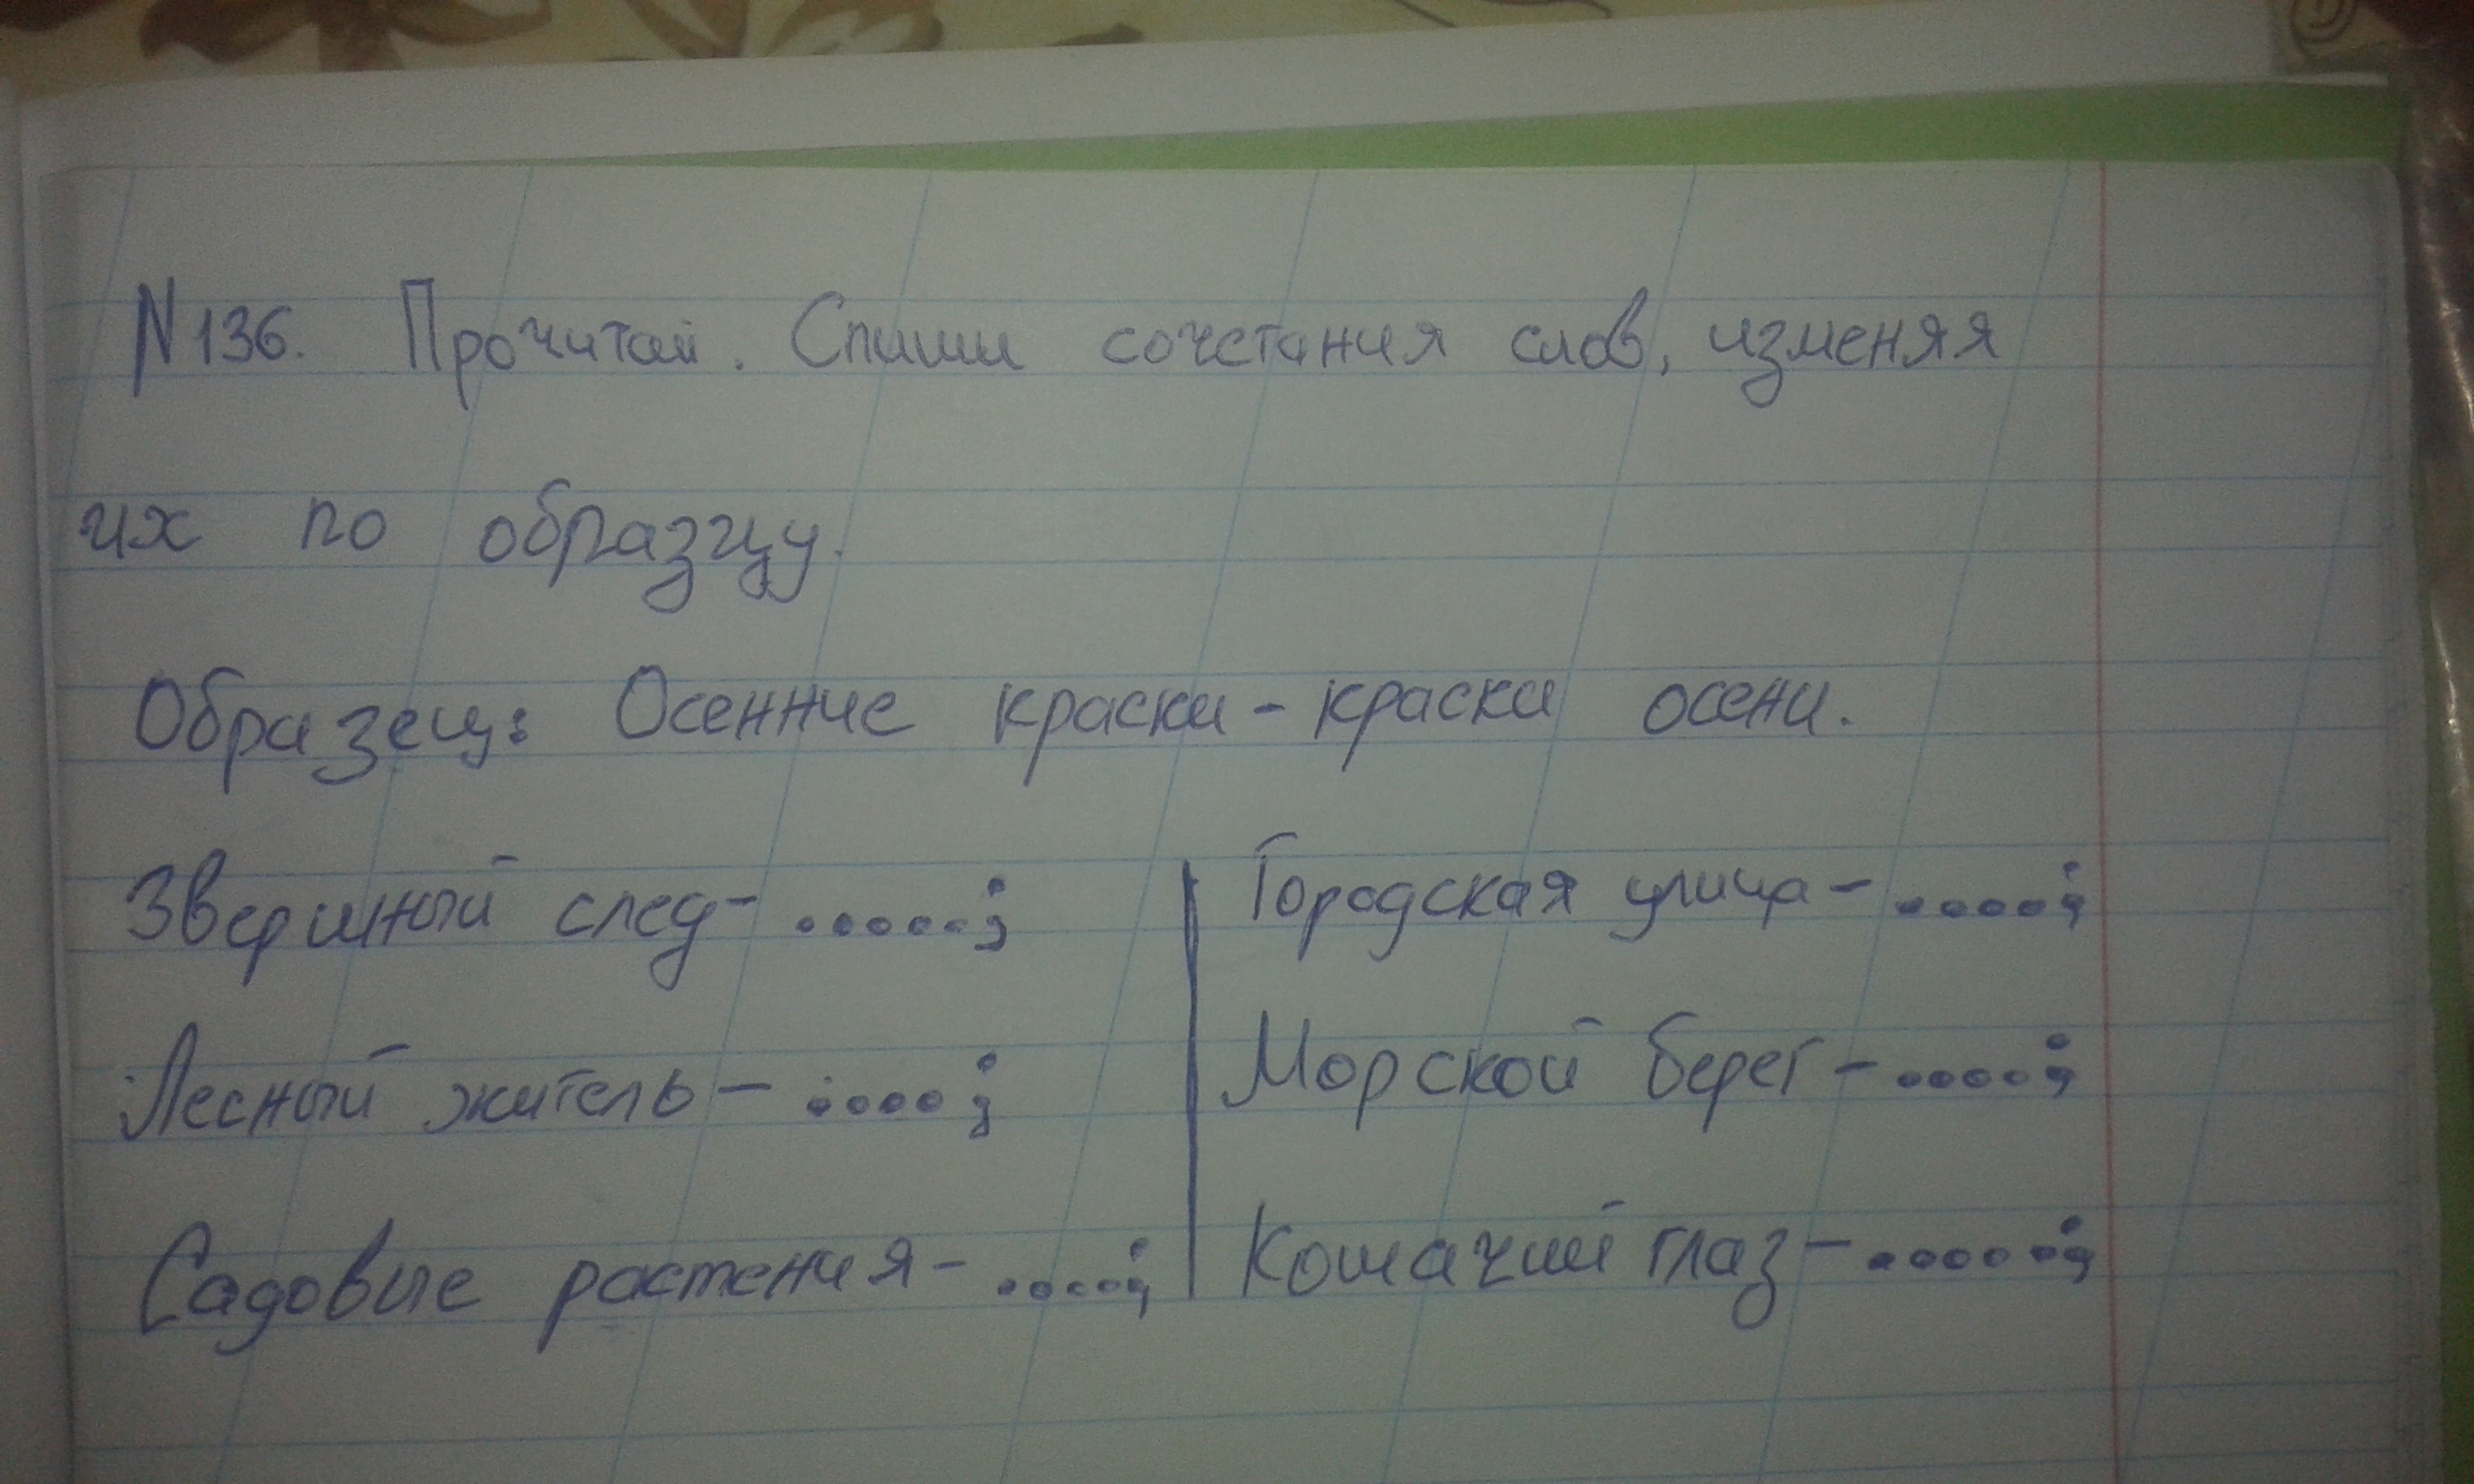 N136. Прочитай. Спиши сочетания слов, изменяя
их по образцу.
Образец: Осенние краски - краски осени.
Звериный след- ......;
Лесный житель - .....;
Садовые растения- .....;
Городская улица- .....;
Морской берег - .....;
Кошачий глаз- ......;